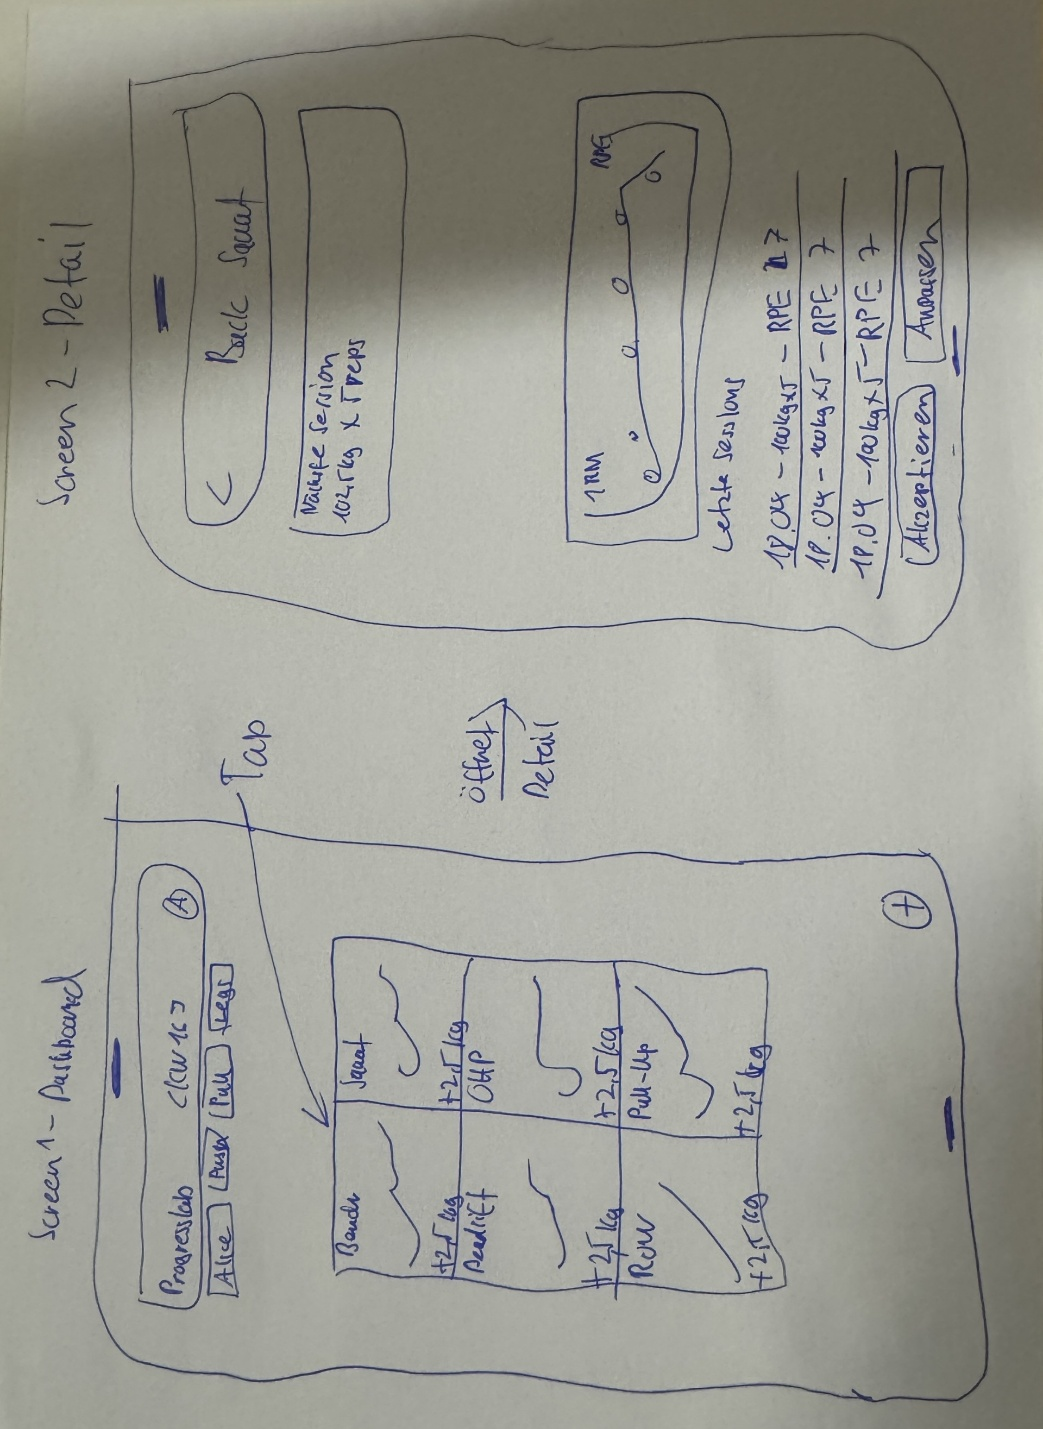 Screen 1 - Dashboard
Progresslab <KW 16> A
Alle Push Pull Legs
Tap
Bench
+2,5 kg
Squat
+2,5 kg
Deadlift
+2,5 kg
OHP
+2,5 kg
Row
+2,5 kg
Pull-Up
+2,5 kg
+
Öffnet
Detail
Screen 2 - Detail
< Back Squat
Nächste Session
102,5kg x 5 reps
1RM RPE
Letzte Sessions
18.04 - 100kg x 5 - RPE 7
18.04 - 100kg x 5 - RPE 7
18.04 - 100kg x 5 - RPE 7
Akzeptieren Anpassen